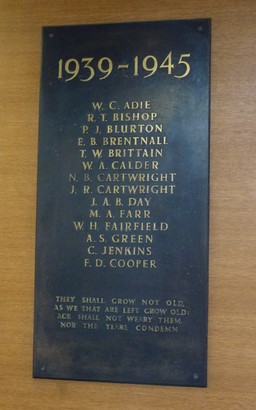 1939-1945
W. C. ADIE
R. T. BISHOP
P. J. BLURTON
E. B. BRENTNALL
T. W. BRITTAIN
W. A. CALDER
N. B. CARTWRIGHT
J. R. CARTWRIGHT
J. A. B. DAY
M. A. FARR
W. H. FAIRFIELD
A. S. GREEN
C. JENKINS
F. D. COOPER
THEY SHALL GROW NOT OLD,
AS WE THAT ARE LEFT GROW OLD:
AGE SHALL NOT WEARY THEM,
NOR THE YEARS CONDEMN